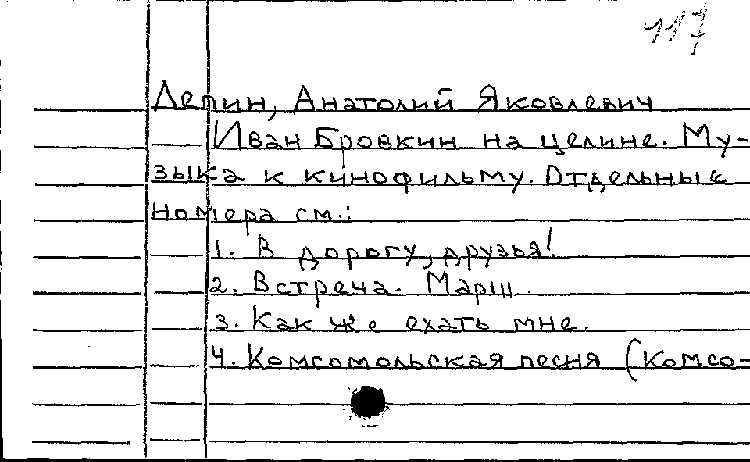 117
Лепин, Анатолий Яковлевич
Иван Бровкин на целине. Му-
зыка к кинофильму. Отдельные
номера см.:
1. В дорогу, друзья!
2. Встреча. Марш.
3. Как же ехать мне.
4. Комсомольская песня (Комсо-